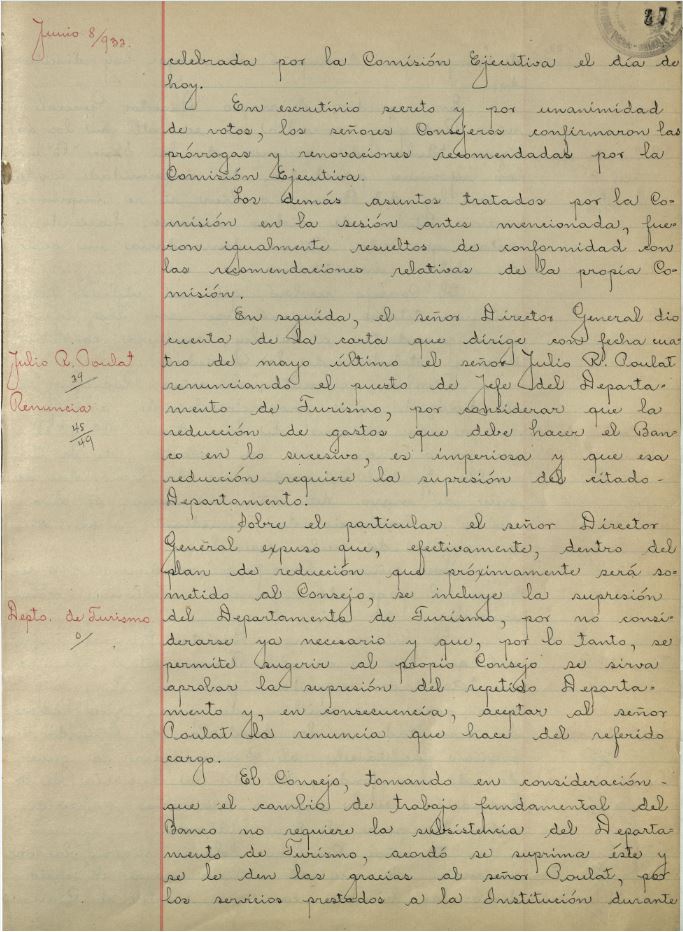 27
Junio 8/932.
celebrada por la Comisión Ejecutiva el día de
hoy.
En escrutinio secreto y por unanimidad
de votos, los señores Consejeros confirmaron las
prórrogas y renovaciones recomendadas por la
Comisión Ejecutiva.
Los demás asuntos tratados por la Co-
misión en la sesión antes mencionada, fue-
ron igualmente resueltos de conformidad con
las recomendaciones relativas de la propia Co-
misión.
En seguida, el señor Director General dio
cuenta de la carta que dirige con fecha cua
Julio R. Poulat
tro de mayo último el señor Julio R. Poulat
39
renunciando el puesto de Jefe del Departa-
Renuncia
mento de Turismo, por considerar que la
45/49
reducción de gastos que debe hacer el Ban-
co en lo sucesivo, es imperiosa y que esa
reducción requiere la supresión del citado-
Departamento.
Sobre el particular el señor Director
General expuso que, efectivamente, dentro del
plan de reducción que próximamente será so-
metido al Consejo, se incluye la supresión
Depto. de Turismo
del Departamento de Turismo, por no consi-
0/
derarse ya necesario y que, por lo tanto, se
permite sugerir al propio Consejo se sirva
aprobar la supresión del repetido Departa-
mento y, en consecuencia, aceptar al señor
Poulat la renuncia que hace del referido
cargo.
El Consejo, tomando en consideración -
que el cambio de trabajo fundamental del
Banco no requiere la subsistencia del Departa-
mento de Turismo, acordó se suprima éste y
se le den las gracias al señor Poulat, por
los servicios prestados a la Institución durante